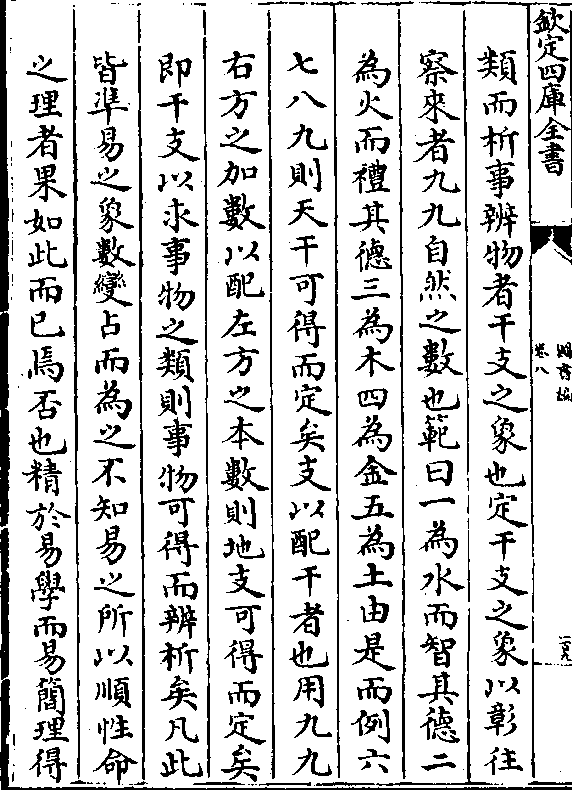 欽定四庫全書
圖書編
卷八
類而析事辨物者干支之象也定干支之象以彰往
察來者九九自然之數也範曰一為水而智其德二
為火而禮其德三為木四為金五為土由是而例六
七八九則天干可得而定矣支以配干者也用九九
右方之加數以配左方之本數則地支可得而定矣
即干支以求事物之類則事物可得而辨析矣凡此
皆準易之象數變占而為之不知易之所以順性命
之理者果如此而已焉否也精於易學而易簡理得